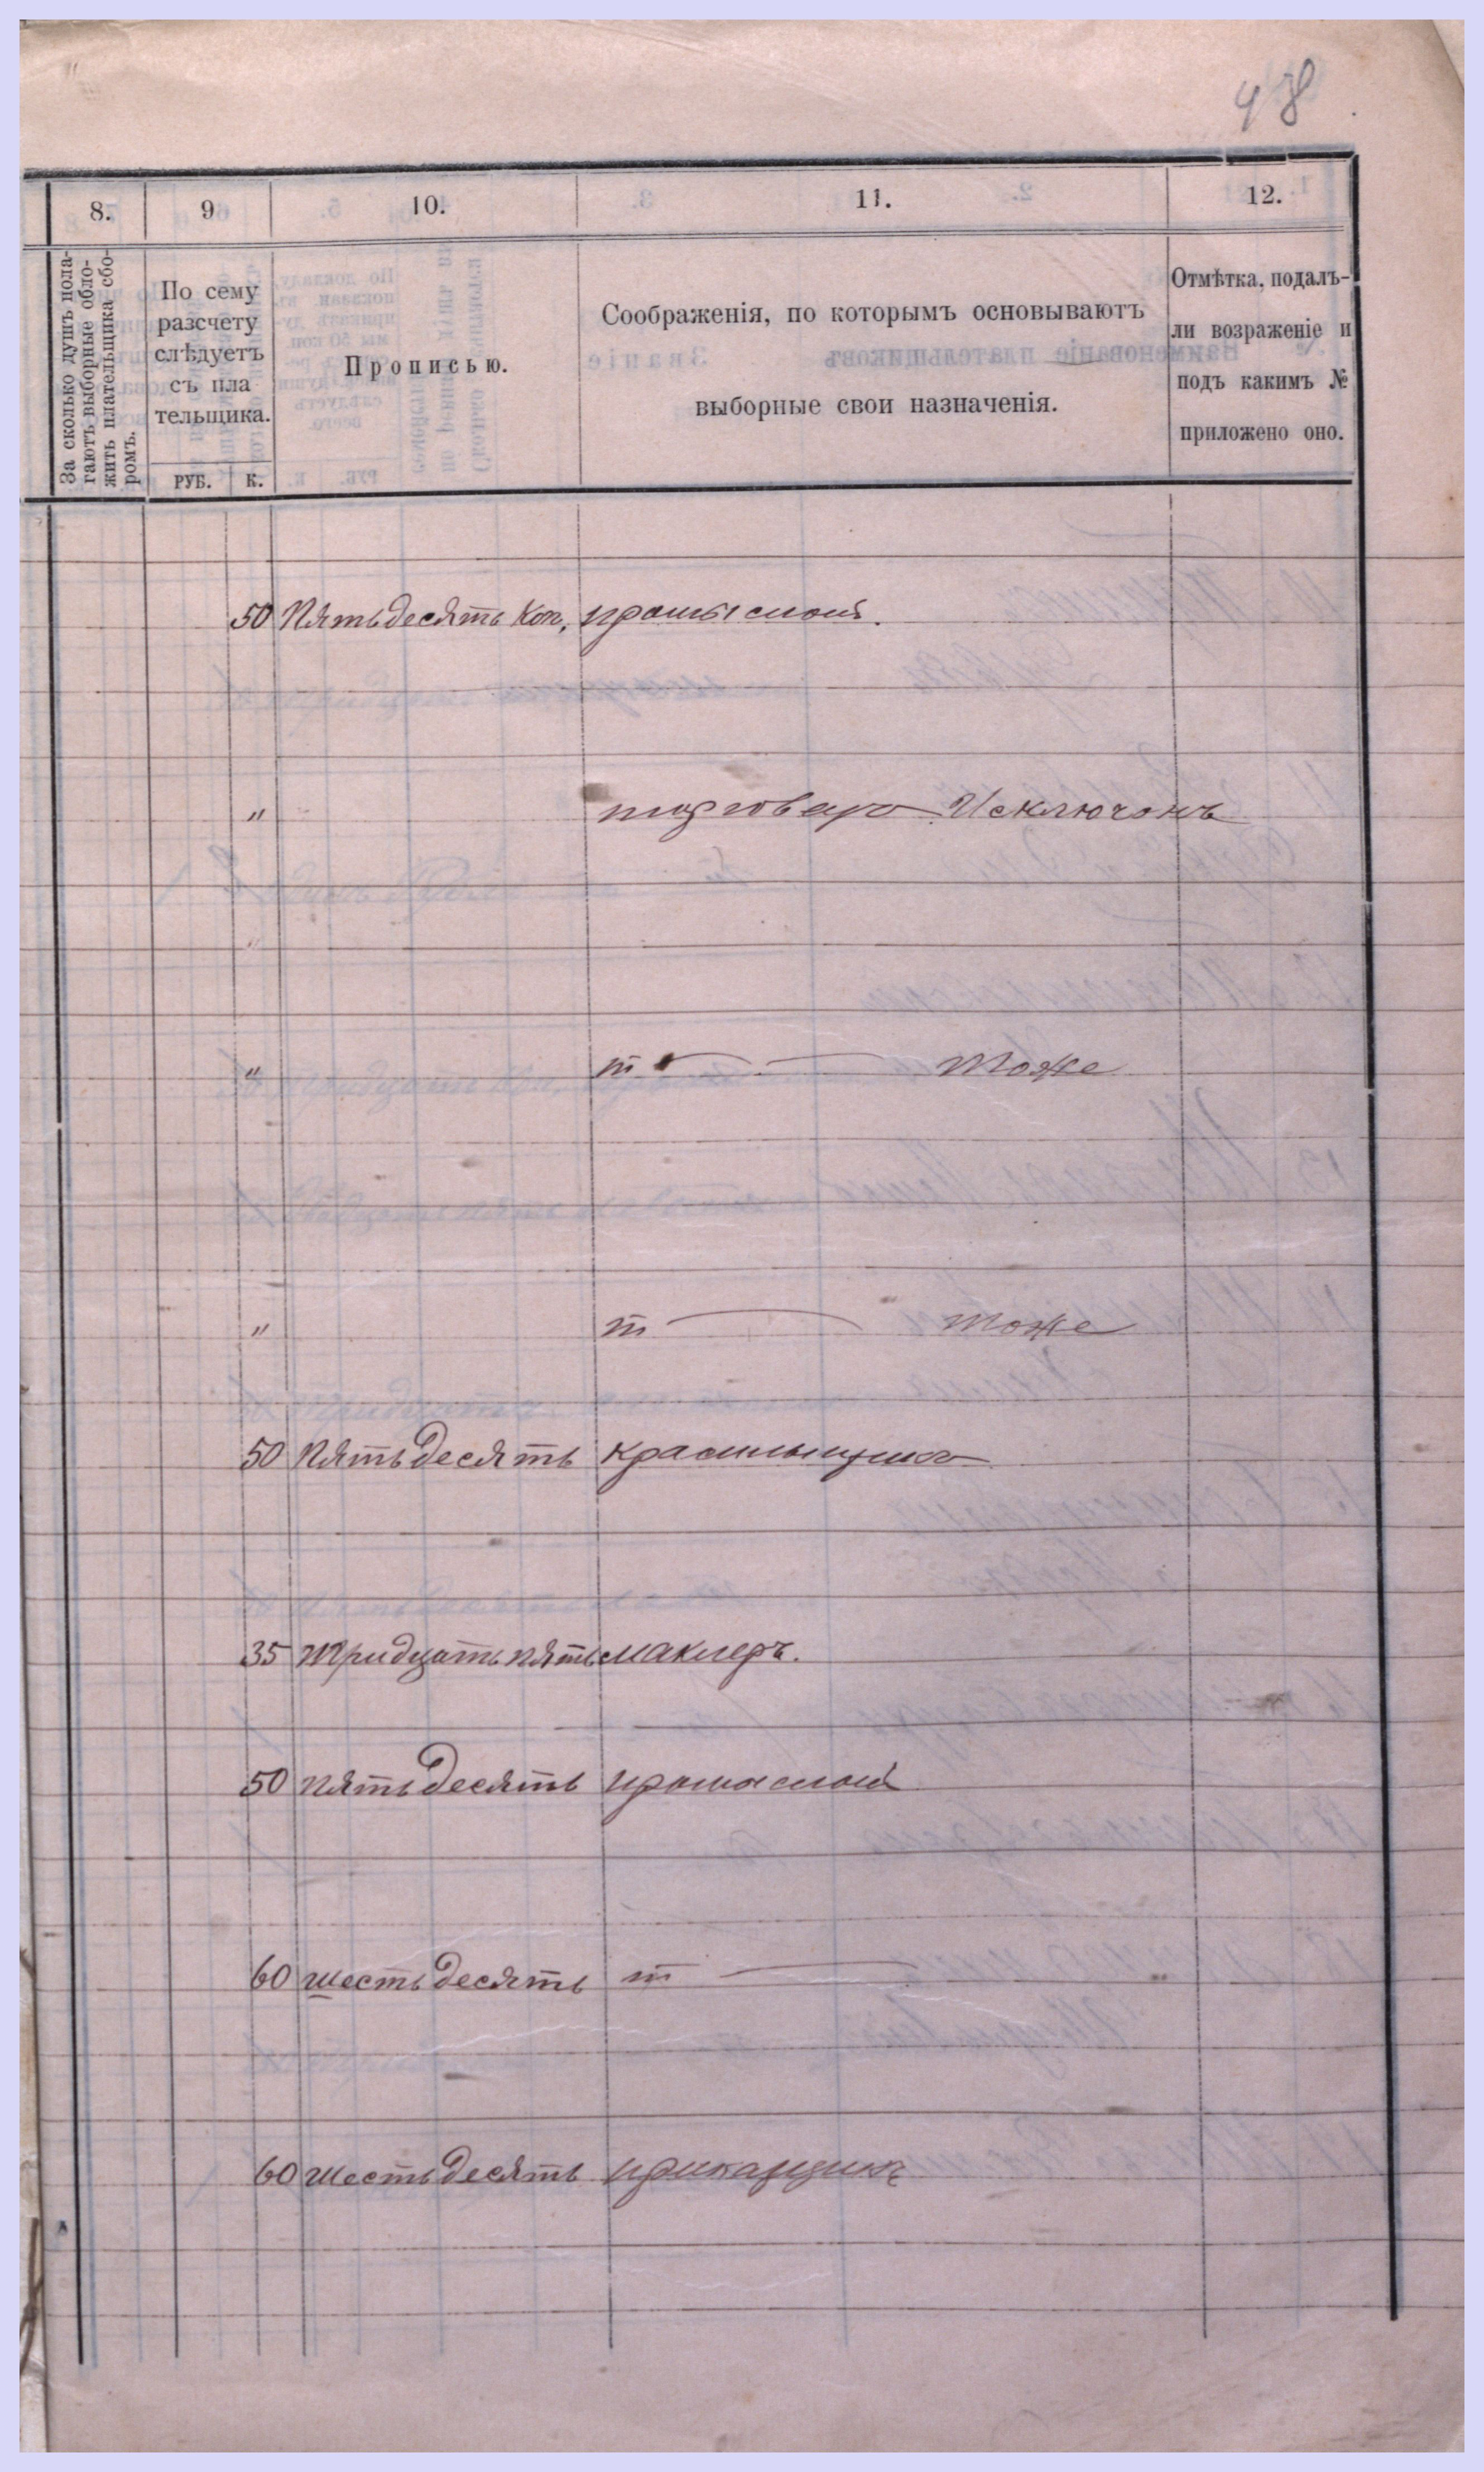 48
8. 9 10. 11. 12.
За сколько душъ пола-
гаютъ выборные обло-
жить плательщика сбо-
ромъ.
По сему
разсчету
слѣдуетъ
съ пла
тельщика.
РУБ. К.
Прописью.
Соображенія, по которымъ основываютъ
выборные свои назначенія.
Отмѣтка, подалъ-
ли возраженіе и
подъ какимъ №
приложено оно.
50 Пятьдесять Коп,
" Исключонъ
"
" т — — Тоже
" т — Тоже
50 Пятьдесять
35 Тридцать пять маклеръ.
50 пятьдесять
60 шестьдесять т —
60 шестьдесять прикащикъ